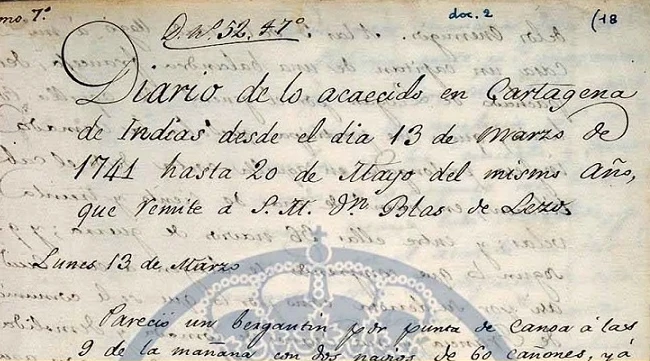 mo 7º
D. Nº. 52. 47º
doc. 2
(18
Diario de lo acaecido en Cartagena
de Indias desde el dia 13 de Marzo de
1741 hasta 20 de Mayo del mismo Año,
que remite a S. M. Dn Blas de Lezo.
Lunes 13 de Marzo
Pareció un bergantin por punta de canoa á las
9 de la mañana con dos navios de 60 cañones, yá